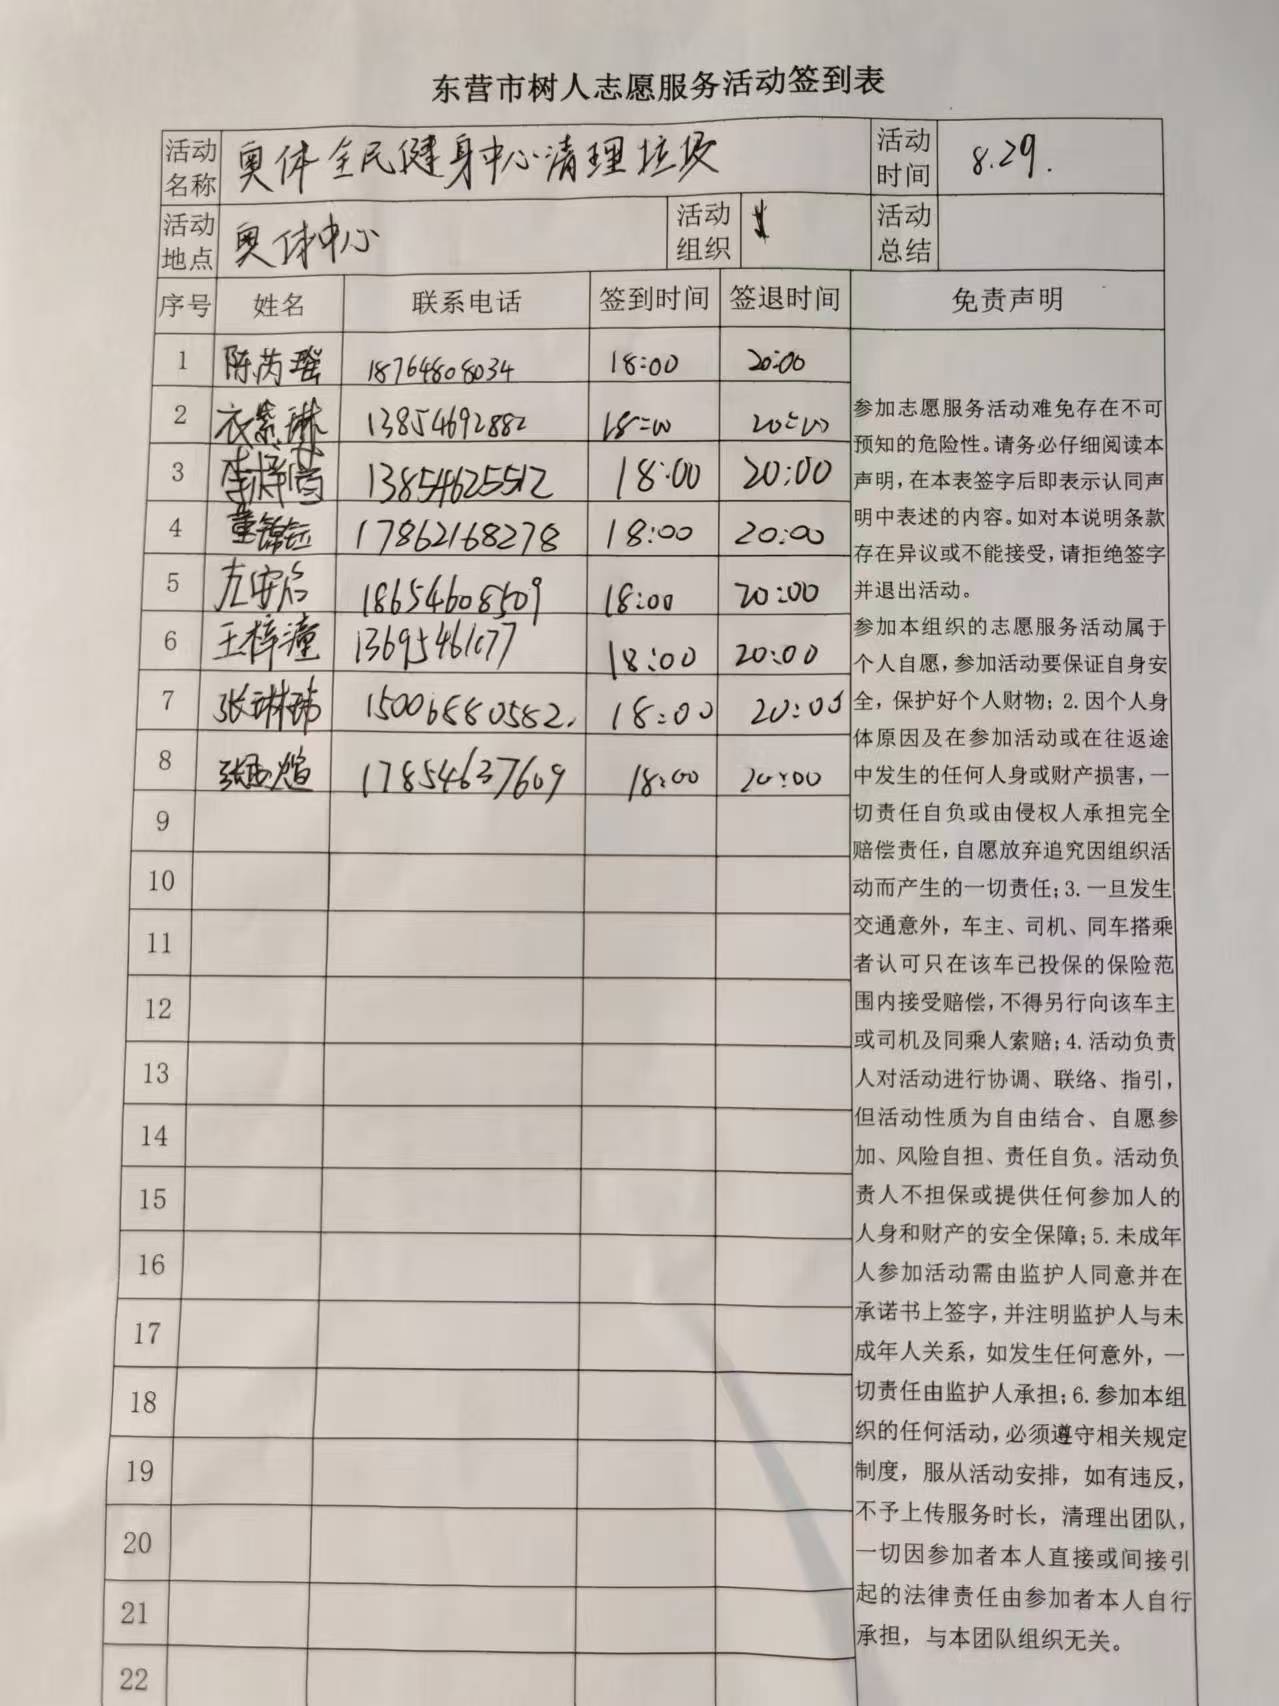 东营市树人志愿服务活动签到表
活动名称 奥体全民健身中心清理垃圾 活动时间 8.29.
活动地点 奥体中心 活动组织 活动总结
序号 姓名 联系电话 签到时间 签退时间 免责声明
1 陈芮瑶 18764808034 18:00 20:00
2 衣紫琳 13854692882 18:00 20:00
3 13854625512 18:00 20:00
4 董锦钰 17862168278 18:00 20:00
5 左安后 18654608509 18:00 20:00
6 王梓潼 18:00 20:00
7 张琳玮 15006880582. 18:00 20:00
8 17854637609 18:00 20:00
9
10
11
12
13
14
15
16
17
18
19
20
21
22
参加志愿服务活动难免存在不可
预知的危险性。请务必仔细阅读本
声明，在本表签字后即表示认同声
明中表述的内容。如对本说明条款
存在异议或不能接受，请拒绝签字
并退出活动。
参加本组织的志愿服务活动属于
个人自愿，参加活动要保证自身安
全，保护好个人财物；2.因个人身
体原因及在参加活动或在往返途
中发生的任何人身或财产损害，一
切责任自负或由侵权人承担完全
赔偿责任，自愿放弃追究因组织活
动而产生的一切责任；3.一旦发生
交通意外，车主、司机、同车搭乘
者认可只在该车已投保的保险范
围内接受赔偿，不得另行向该车主
或司机及同乘人索赔；4.活动负责
人对活动进行协调、联络、指引，
但活动性质为自由结合、自愿参
加、风险自担、责任自负。活动负
责人不担保或提供任何参加人的
人身和财产的安全保障；5.未成年
人参加活动需由监护人同意并在
承诺书上签字，并注明监护人与未
成年人关系，如发生任何意外，一
切责任由监护人承担；6.参加本组
织的任何活动，必须遵守相关规定
制度，服从活动安排，如有违反，
不予上传服务时长，清理出团队，
一切因参加者本人直接或间接引
起的法律责任由参加者本人自行
承担，与本团队组织无关。